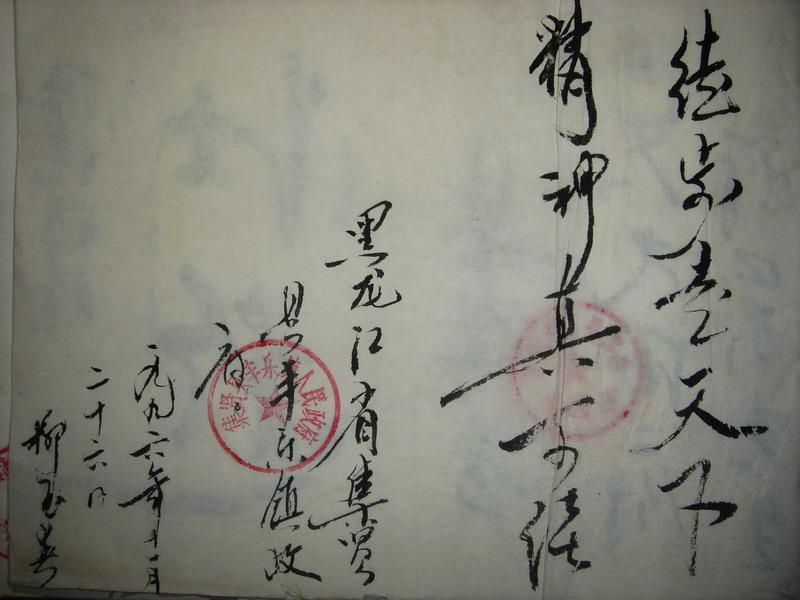 徒步走天下
精神真可佳
黑龙江省集贤
县丰乐镇政
府
一九九六年十一月
二十六日
柳玉春
集贤县丰乐镇人民政府